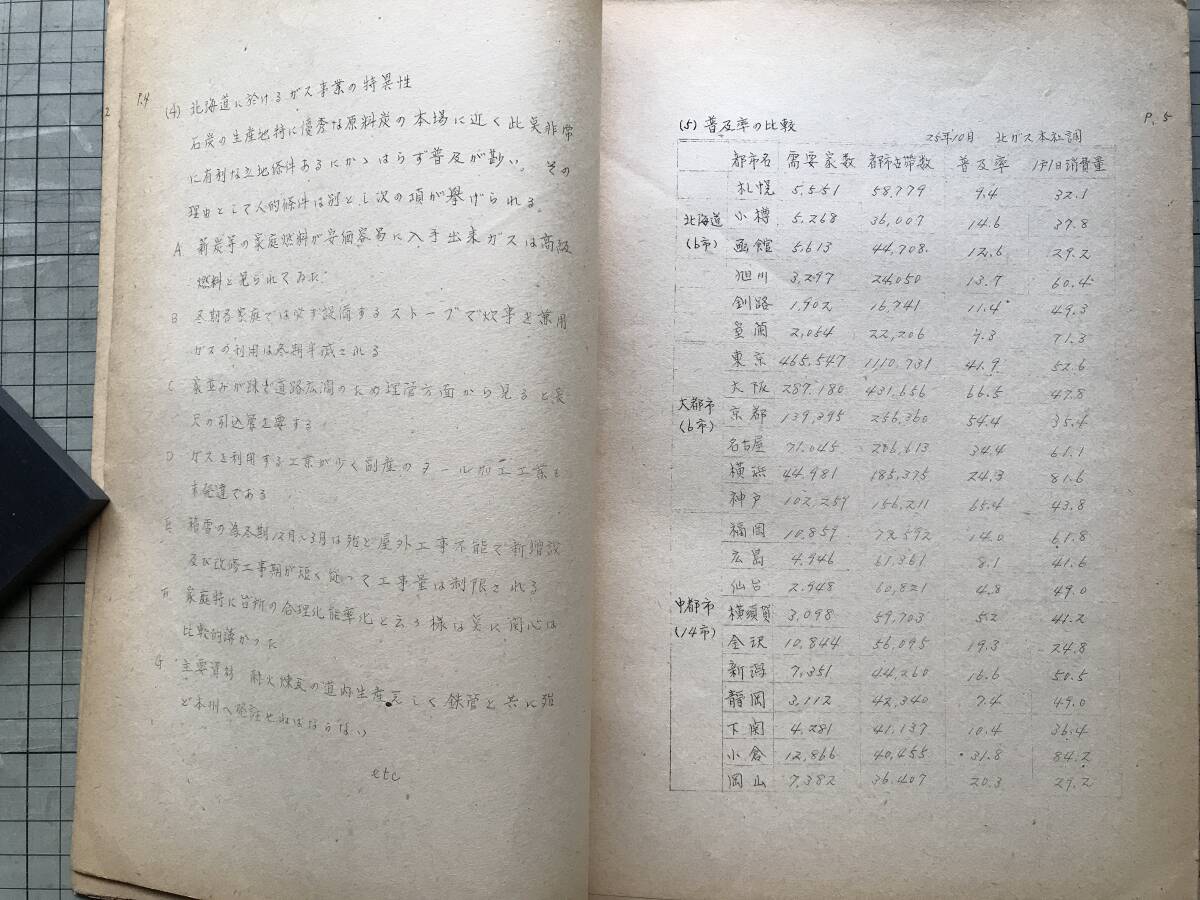 P.4
2
(4) 北海道に於けるガス事業の特異性
石炭の生産地特に優秀な原料炭の本場に近く此点非常
に有利な立地條件あるにかゝはらず普及が尠い。その
理由として人的條件は別とし次の項が挙げられる。
A 薪炭等の家庭燃料が安価容易に入手出来ガスは高級
燃料と見られてゐた
B 冬期各家庭では必ず設備するストーブで炊事を兼用
ガスの利用は冬期半減される
C 家並みが疎で道路広濶のため埋管方面から見ると長
尺の引込管を要する
D ガスを利用する工業が少く副産のタール加工工業も
未発達である
E 積雪の為冬期12月〜3月は殆ど屋外工事不能で新増設
及び改修工事期が短く従つて工事量は制限される
F 家庭特に台所の合理化能率化と云う様な点に関心は
比較的薄かつた
G 主要資材 耐火煉瓦の道内生産乏しく鉄管と共に殆
ど本州へ発註せねばならない
etc
P.5
(5) 普及率の比較
25年10月 北ガス本社調
都市名 需要家数 都市世帯数 普及率 1戸1日消費量
北海道(6市) 札幌 5,551 58,779 9.4 32.1
小樽 5,268 36,007 14.6 37.8
函館 5,613 44,708 12.6 29.2
旭川 3,297 24,050 13.7 60.4
釧路 1,902 16,741 11.4 49.3
室蘭 2,064 22,206 9.3 71.3
大都市(6市) 東京 465,547 1110,731 41.9 52.6
大阪 287,180 431,656 66.5 47.8
京都 139,395 256,360 54.4 35.4
名古屋 71,045 206,613 34.4 61.1
横浜 44,981 185,375 24.3 81.6
神戸 102,259 156,211 65.4 43.8
中都市(14市) 福岡 10,859 72,592 14.0 61.8
広島 4,946 61,361 8.1 41.6
仙台 2,948 60,821 4.8 49.0
横須賀 3,098 59,703 5.2 41.2
金沢 10,844 56,095 19.3 24.8
新潟 7,351 44,260 16.6 50.5
静岡 3,112 42,340 7.4 49.0
下関 4,281 41,137 10.4 36.4
小倉 12,866 40,455 31.8 84.2
岡山 7,382 36,407 20.3 29.2